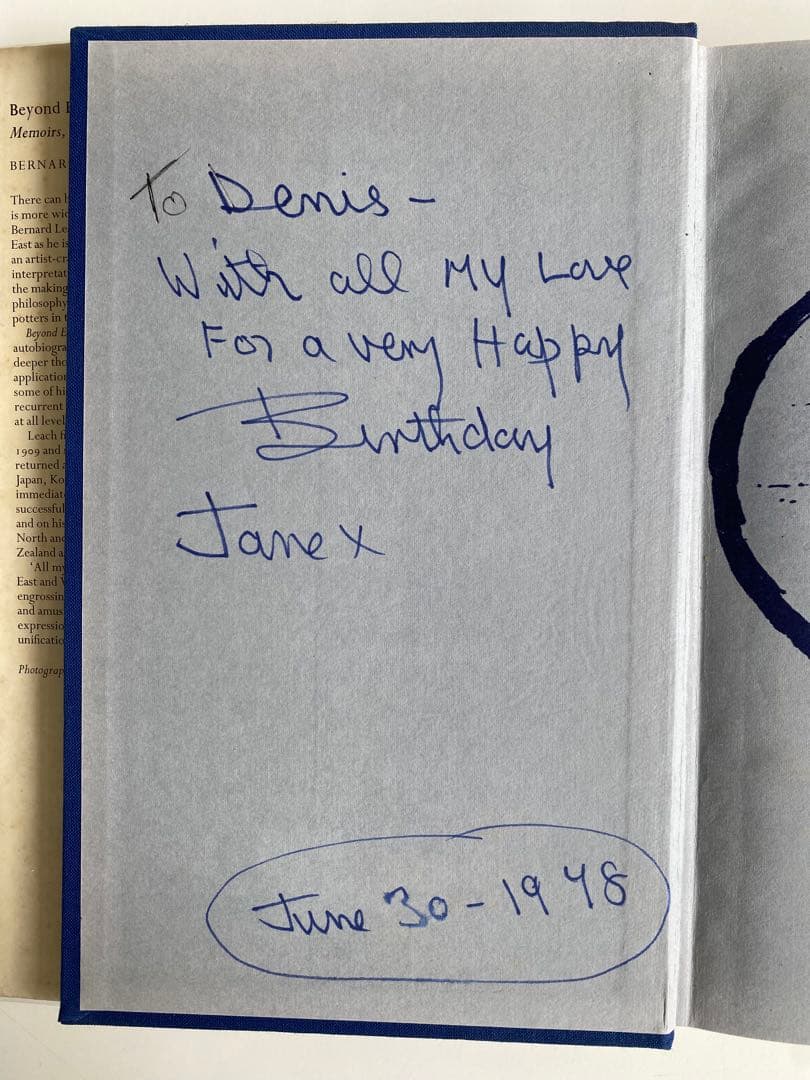 Beyond
Memoirs,
BERNAR
There can
is more
Bernard
East as he is
an artist-cr
interpretat
the making
philosophy
potters in
Beyond E
autobiogra
deeper
applicatio
some of hi
recurrent
at all level
Leach
1909 and
returned
Japan, Ko
immediat
successful
and on his
North and
Zealand a
'All my
East and
engrossin
and amus
expressio
unificatio
Photograp
To Denis -
With all My Love
For a very Happy
Birthday
Jane x
June 30 - 1948